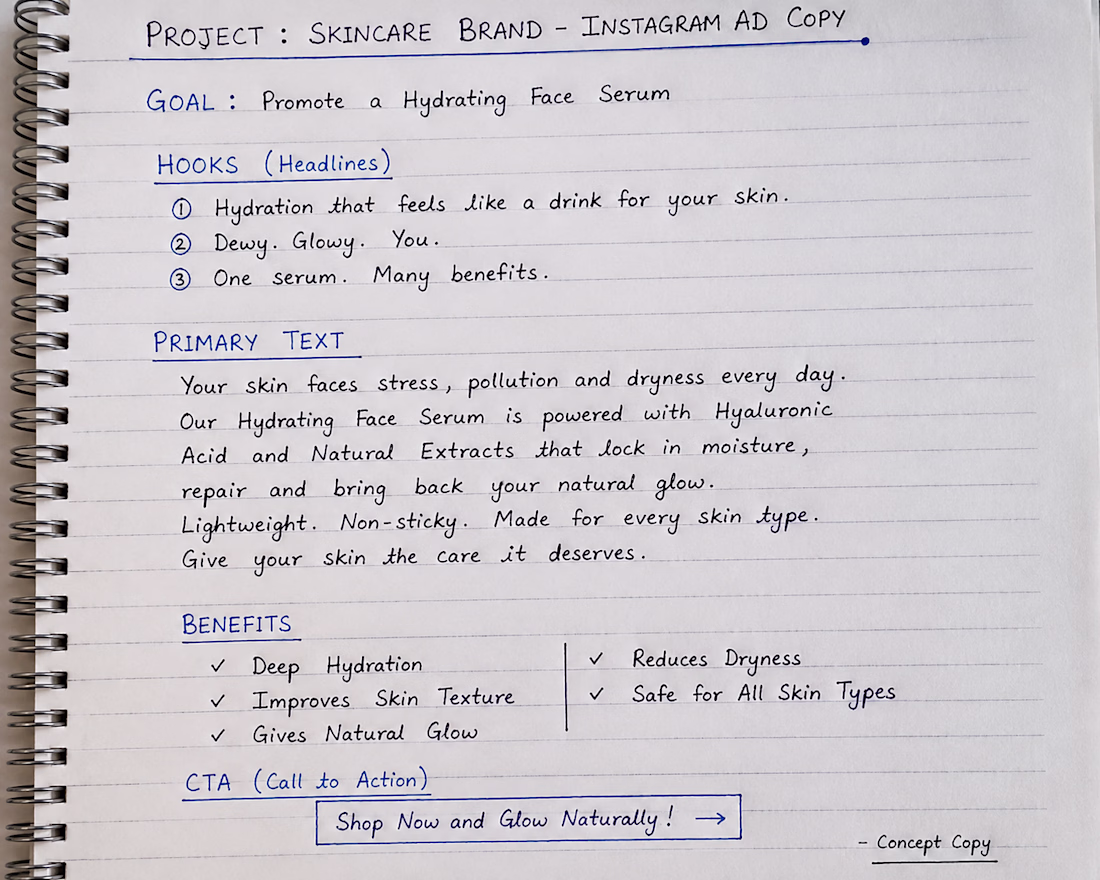 PROJECT : SKINCARE BRAND - INSTAGRAM AD COPY
GOAL : Promote a Hydrating Face Serum
HOOKS (Headlines)
① Hydration that feels like a drink for your skin.
② Dewy. Glowy. You.
③ One serum. Many benefits.
PRIMARY TEXT
Your skin faces stress, pollution and dryness every day.
Our Hydrating Face Serum is powered with Hyaluronic
Acid and Natural Extracts that lock in moisture,
repair and bring back your natural glow.
Lightweight. Non-sticky. Made for every skin type.
Give your skin the care it deserves.
BENEFITS
✓ Deep Hydration
✓ Improves Skin Texture
✓ Gives Natural Glow
✓ Reduces Dryness
✓ Safe for All Skin Types
CTA (Call to Action)
Shop Now and Glow Naturally! →
- Concept Copy